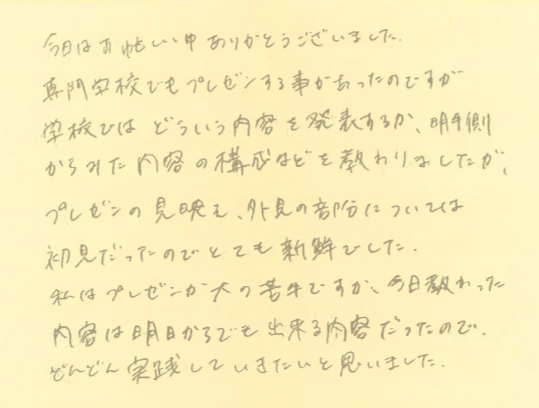 今日はお忙しい中ありがとうございました.
専門学校でもプレゼンする事があったのですが
学校では どういう内容を発表するか、聞き手側
からみた内容の構成などを教わりましたが、
プレゼンの見映え、外見の部分については
初見だったのでとても新鮮でした.
私はプレゼンが大の苦手ですが、今日教わった
内容は明日からでも出来る内容だったので.
どんどん実践していきたいと思いました.